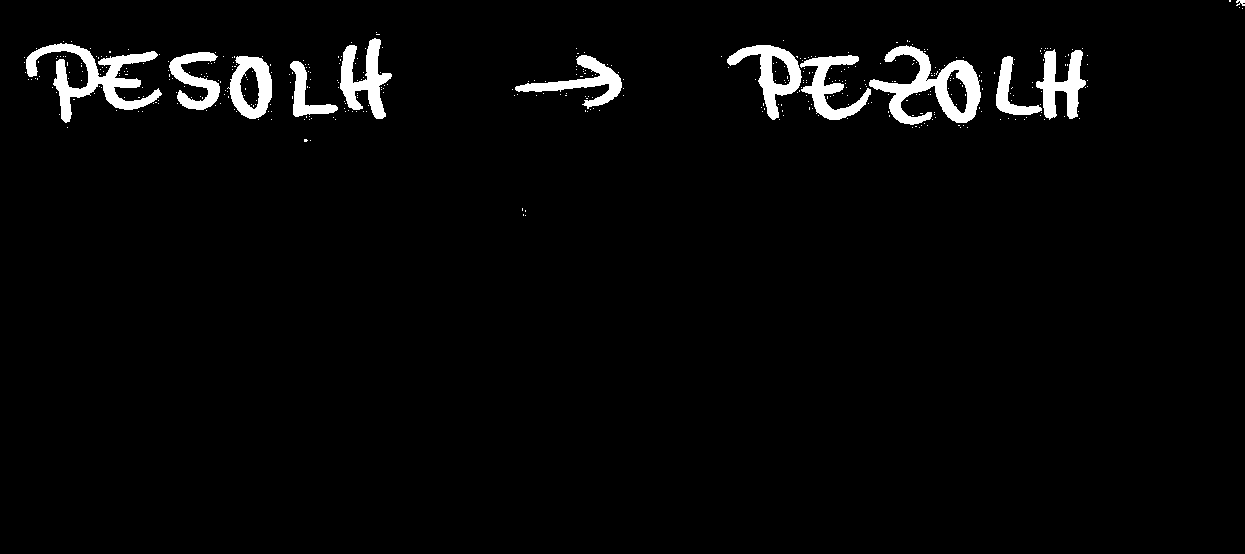 PESOLH → PEZOLH